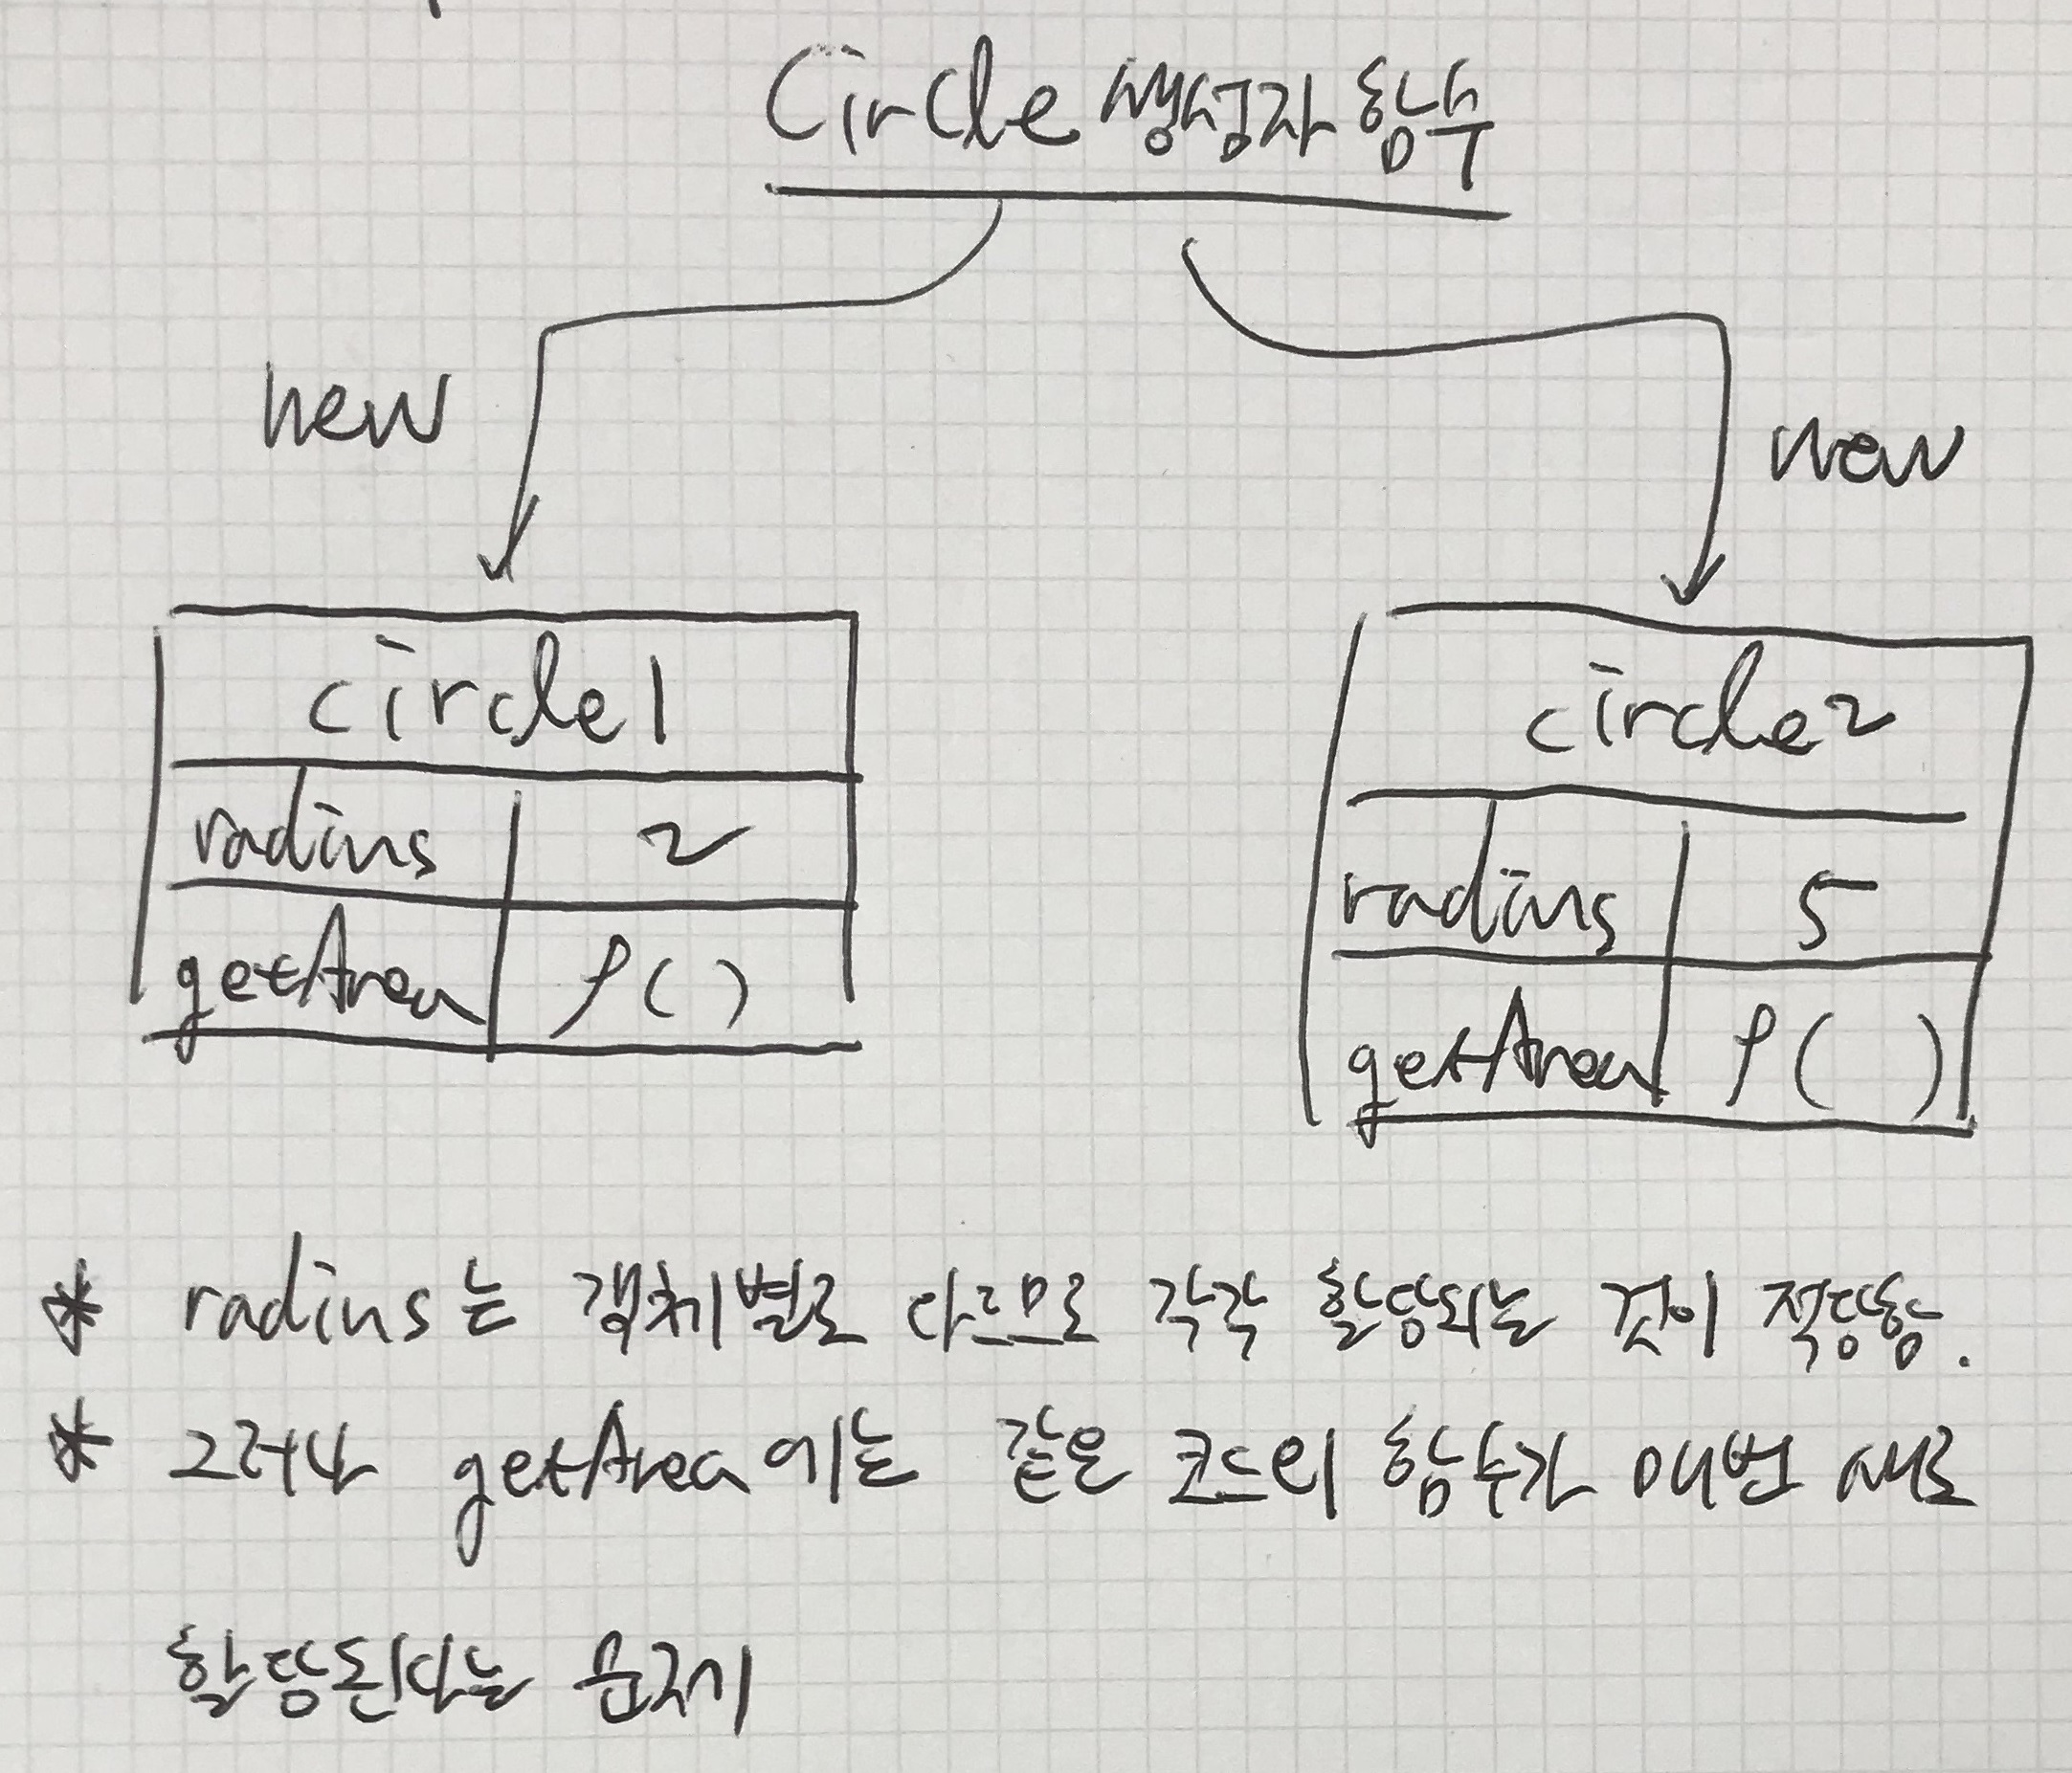 Circle 생성자 함수
new
new
circle1
radius 2
getArea f()
circle2
radius 5
getArea f( )
* radius는 객체별로 다르므로 각각 할당되는 것이 적당함.
* 그러나 getArea에는 같은 코드의 함수가 매번 새로
할당된다는 문제